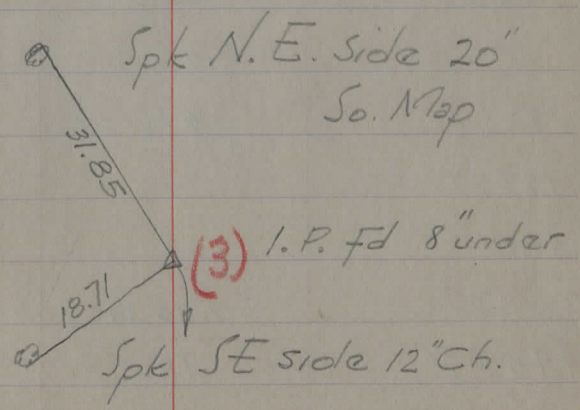 Spk N.E. Side 20"
So. Map
31.85
(3) I.P. Fd 8" under
18.71
Spk SE side 12" Ch.